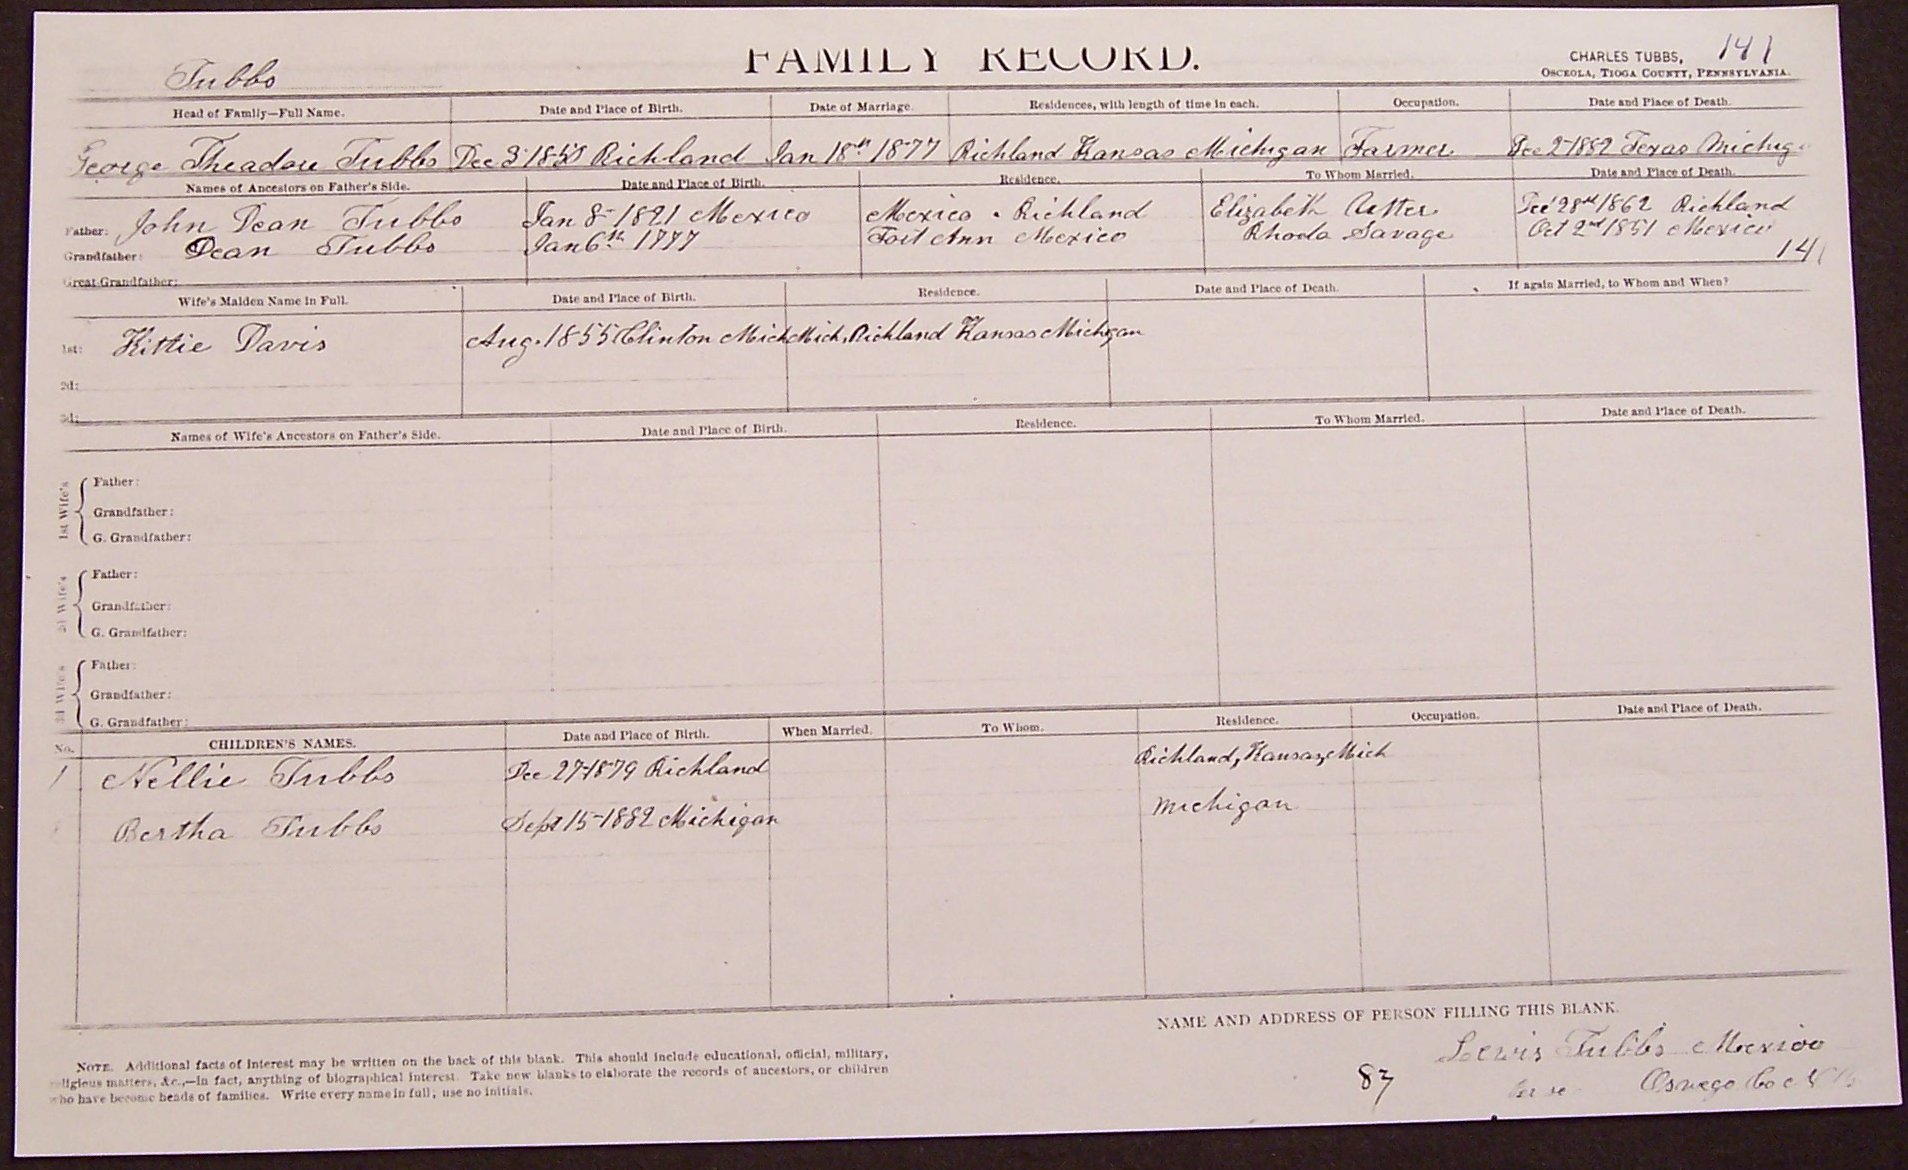 Tubbs
FAMILY RECORD.
CHARLES TUBBS, 141
OSCEOLA, TIOGA COUNTY, PENNSYLVANIA.
Head of Family—Full Name. Date and Place of Birth. Date of Marriage. Residences, with length of time in each. Occupation. Date and Place of Death.
George Theadore Tubbs Dec 3 1850 Richland Jan 18th 1877 Richland Kansas Michigan Farmer Dec 2-1882 Texas Michig
Names of Ancestors on Father's Side. Date and Place of Birth. Residence. To Whom Married. Date and Place of Death.
Father: John Dean Tubbs Jan 8- 1821 Mexico Mexico Richland Elizabeth 28 1862 Richland
Grandfather: Dean Tubbs Jan 6th 1777 Fort Ann Mexico Rhoda Savage Oct 2nd 1851 Mexico
141
Great Grandfather:
Wife's Maiden Name in Full. Date and Place of Birth. Residence. Date and Place of Death. If again Married, to Whom and When?
1st: Kittie Davis Aug. 1855 Clinton Mich Mich, Richland Kansas Michigan
2d:
3d:
Names of Wife's Ancestors on Father's Side. Date and Place of Birth. Residence. To Whom Married. Date and Place of Death.
1st Wife's
Father:
Grandfather:
G. Grandfather:
2d Wife's
Father:
Grandfather:
G. Grandfather:
3d Wife's
Father:
Grandfather:
G. Grandfather:
No. CHILDREN'S NAMES. Date and Place of Birth. When Married. To Whom. Residence. Occupation. Date and Place of Death.
1 Nellie Tubbs Dec 27-1879 Richland Richland, Kansas, Mich
Bertha Tubbs Sept 15-1882 Michigan Michigan
NAME AND ADDRESS OF PERSON FILLING THIS BLANK.
Lewis Tubbs Mexico
Oswego Co N Y
87
NOTE. Additional facts of interest may be written on the back of this blank. This should include educational, official, military,
religious matters, &c.,—in fact, anything of biographical interest. Take new blanks to elaborate the records of ancestors, or children
who have become heads of families. Write every name in full; use no initials.